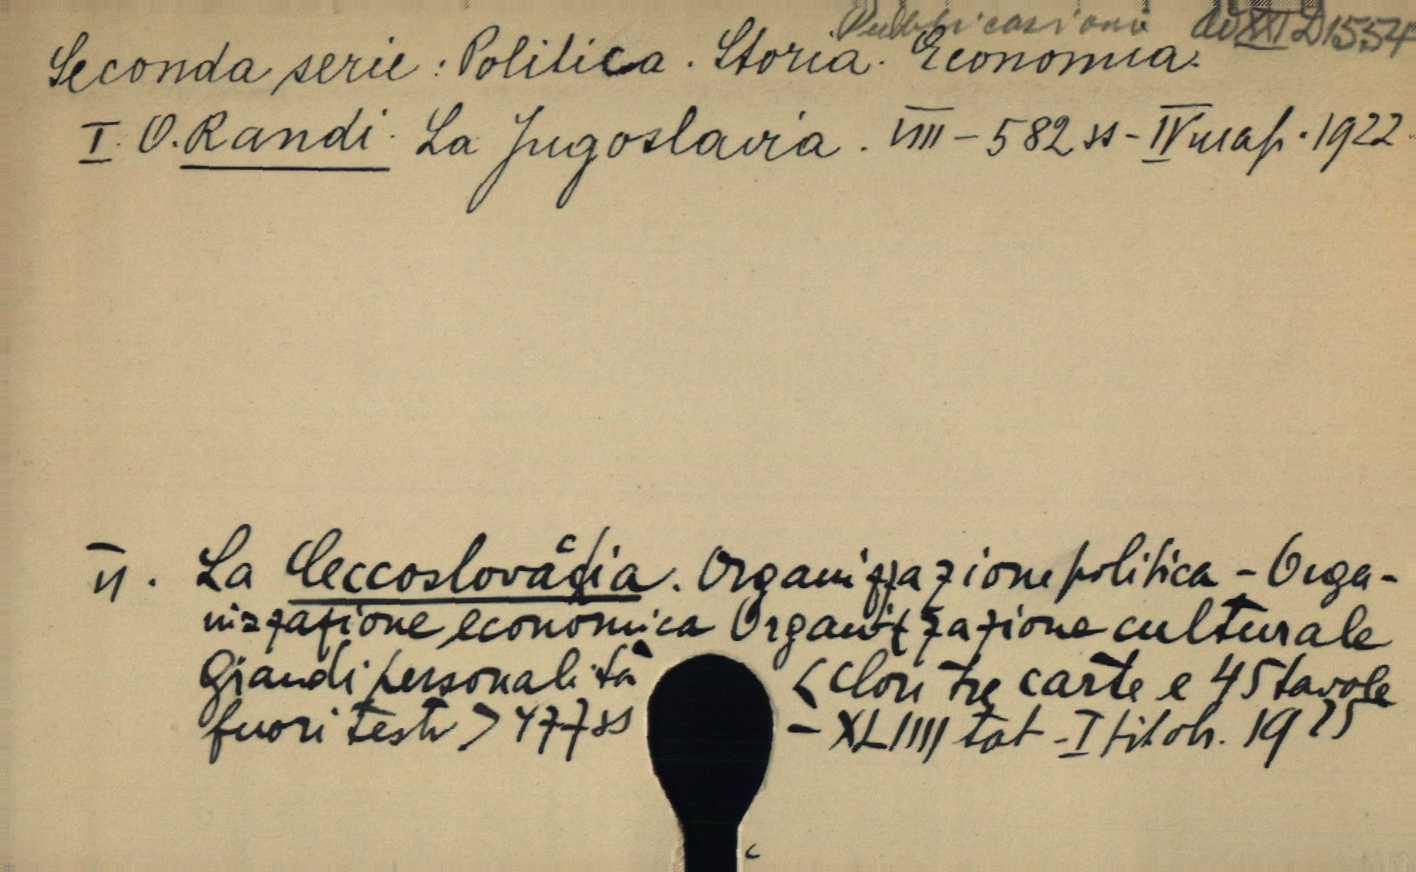 Pubblicazioni dell XXI D1554
Seconda serie: Politica. Storia. Economia.
I. O. Randi. La Jugoslavia. VIII – 582 ss – IV map. 1922.
II. La Ceccoslovacia. Organizzazione politica – Orga-
nizzazione economica Organizzazione culturale
Grandi personalità <Con tre carte e 45 tavole
fuori testo> 477 ss – XLIIII tab – I 1925